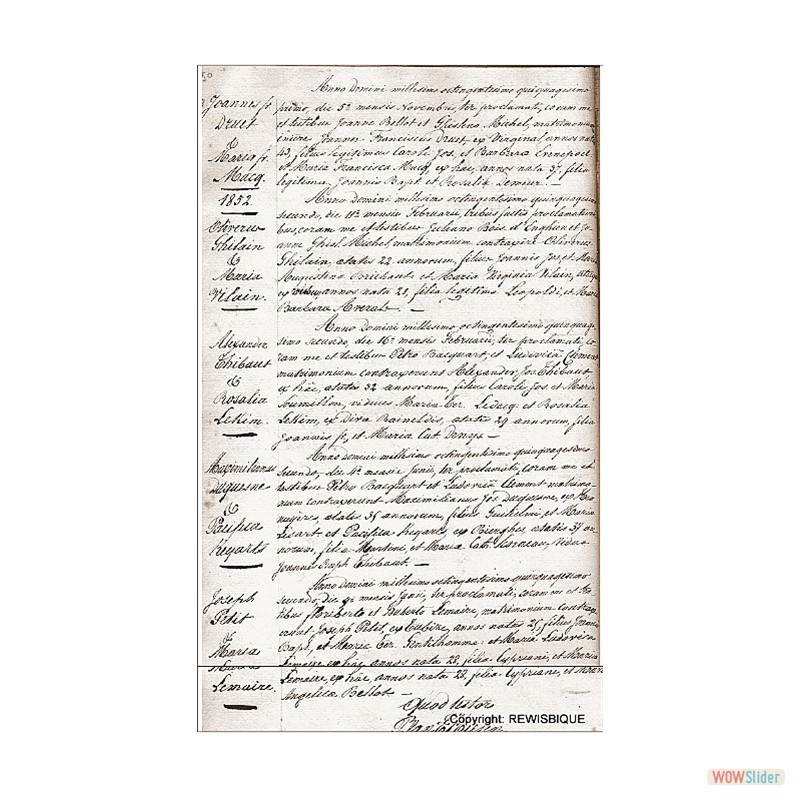 50
Joannes fr.
Druet
&
Maria fr.
Mucq.
Anno Domini millesimo octingentesimo quinquagesimo
primo, die 5ª mensis Novembris, ter proclamati, coram me
et testibus Joanne Bellot et Ghisleno Michel, matrimonium
iniere Joannes Franciscus Druet, ex Virginal, annos natus
43, filius legitimus Caroli Jos. et Barbara
et Maria Francisca Mucq, ex hac, annos nata 37, filia
legitima Joannis Bapt. et Rosalia Lemieur. —
1852
Oliverus
Ghilain
&
Maria
Vilain.
Anno Domini millesimo octingentesimo quinquagesimo
secundo, die 11ª mensis Februarii, tribus factis proclamationi
bus, coram me et testibus Juliano Bois d'Enghien et Jo-
anne Ghisl. Michel, matrimonium contraxere Oliverus
Ghilain, ætatis 22 annorum, filius Joannis Jos. et Maria
Augustina Brichaut, et Maria Virginia Vilain,
ex annos nata 21, filia legitima Leopoldi, et Maria
Barbara —
Alexander
Thibaut
&
Rosalia
Lekim.
Anno Domini millesimo octingentesimo quinquage
simo secundo, die 16ª mensis Februarii, ter proclamati, co
ram me et testibus Petro Bacquart, et Ludovico Clement
matrimonium contraxerunt Alexander Jos. Thibaut
ex hac, ætatis 32 annorum, filius Caroli Jos. et Maria
Soumillon, viduus Maria Ter. Ledecq et Rosalia
Lekim, ex Diva Raineldis, ætatis 29 annorum, filia
Joannis fr. et Maria Cat. Denys —
Maximilianus
Duquesne
&
Pacifica
Hegarts
Anno Domini millesimo octingentesimo quinquagesimo
secundo, die 4ª mensis Junii, ter proclamati, coram me et
testibus Petro Bacquart et Ludovico Clement matrimo
nium contraxerunt Maximilianus Jos. Duquesne, ex
ætatis 35 annorum, filius Guilielmi, et Maria
Lisart et Pacifica Hegarts, ex Bierghes, ætatis 37 an-
norum, filia Martini, et Maria Cath. vidua
Joannis Bapt. Thibaut. —
Joseph
Petit
&
Maria
Lemaire.
Anno Domini millesimo octingentesimo quinquagesimo
secundo, die 9ª mensis Junii, ter proclamati, coram me et tes
tibus Noriberto et Huberto Lemaire, matrimonium contrax
erunt Joseph Petit, ex Tubize, annos natus 25, filius Joannis
Bapt. et Maria Ter. Gentilhomme et Maria Ludovica
Lemaire ex hac, annos nata 28, filia Cypriani, et Maria
Lemaire, ex hac, annos nata 28, filia Cypriani, et Maria
Angelica Bellot —
Quod testor
Copyright: REWISBIQUE
WOWSlider